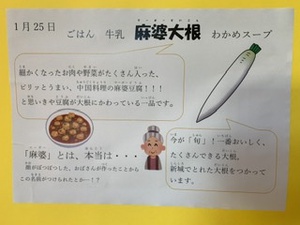 1月25日
ごはん 牛乳 麻婆大根 わかめスープ
細かくなったお肉や野菜がたくさん入った、
ピリッとうまい、中国料理の麻婆豆腐!!!
と思いきや豆腐が大根にかわっている一品です。
「麻婆」とは、本当は・・・
顔がぼつぼつした、おばさんが作ったことから
この名前がつけられたとか…!?
今が「旬」!一番おいしく、
たくさんできる大根。
新城でとれた大根をつかって
います。